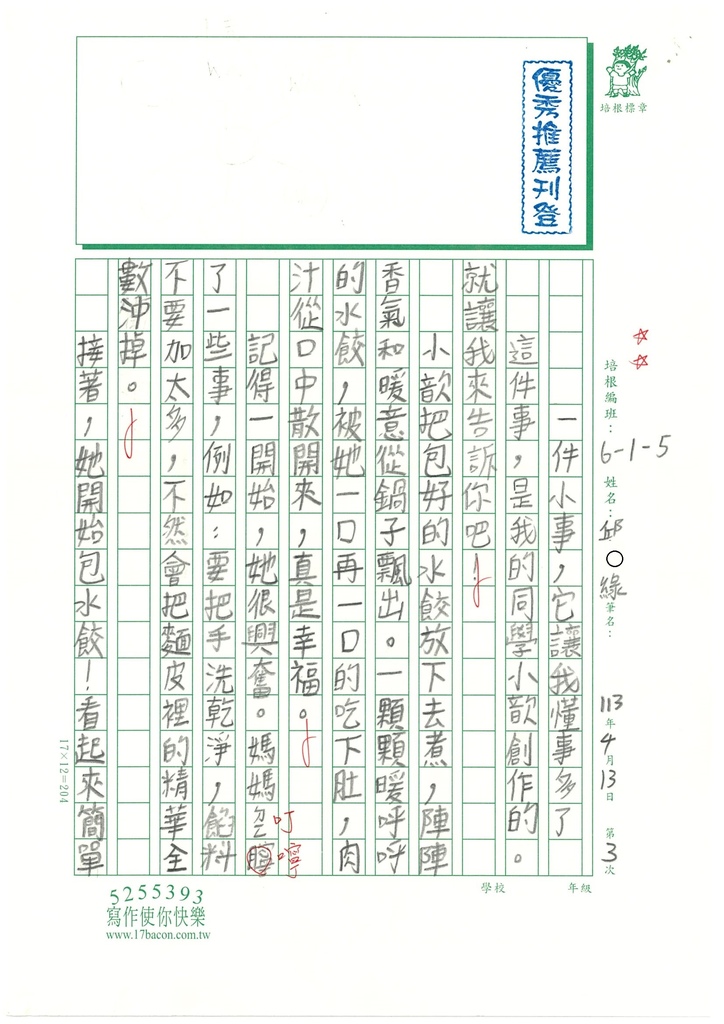 優秀推薦刊登
培根標章
培根編班：6-1-5 姓名：邱○緣 筆名：
113年4月13日 第3次
學校 年級
一件小事，它讓我懂事多了
這件事，是我的同學小歆創作的。
就讓我來告訴你吧！
小歆把包好的水餃放下去煮，陣陣
香氣和暖意從鍋子飄出。一顆顆暖呼呼
的水餃，被她一口再一口的吃下肚，肉
汁從口中散開來，真是幸福。
叮嚀
記得一開始，她很興奮。媽媽
了一些事，例如：要把手洗乾淨，餡料
不要加太多，不然會把麵皮裡的精華全
數沖掉。
接著，她開始包水餃！看起來簡單
17×12=204
5255393
寫作使你快樂
www.17bacon.com.tw